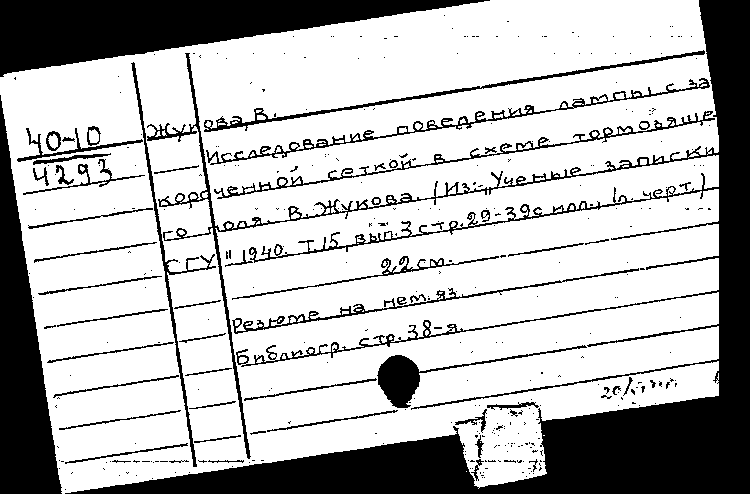 40-10
4293
Жукова, В.
Исследование поведения лампы с за
короченной сеткой в схеме тормозяще
го поля. В. Жукова. (Из: „Ученые записки
СГУ" 1940. Т.15, вып.3 стр.29-39 с илл., 1л. черт.)
22 см.
Резюме на нем. яз.
Библиогр. стр. 38-я.